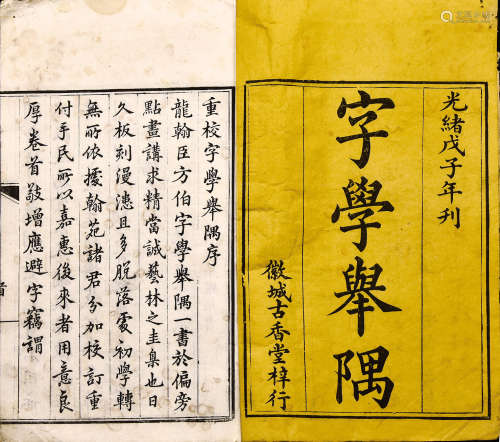 光緒戊子年刊
字學舉隅
徽城古香堂梓行
重校字學舉隅序
龍翰臣方伯字學舉隅一書於偏旁
點畫講求精當誠藝林之圭臬也日
久板刻漫漶且多脫落處初學轉
無所依據翰苑諸君分加校訂重
付手民所以嘉惠後來者用意良
厚卷首敬增應避字竊謂